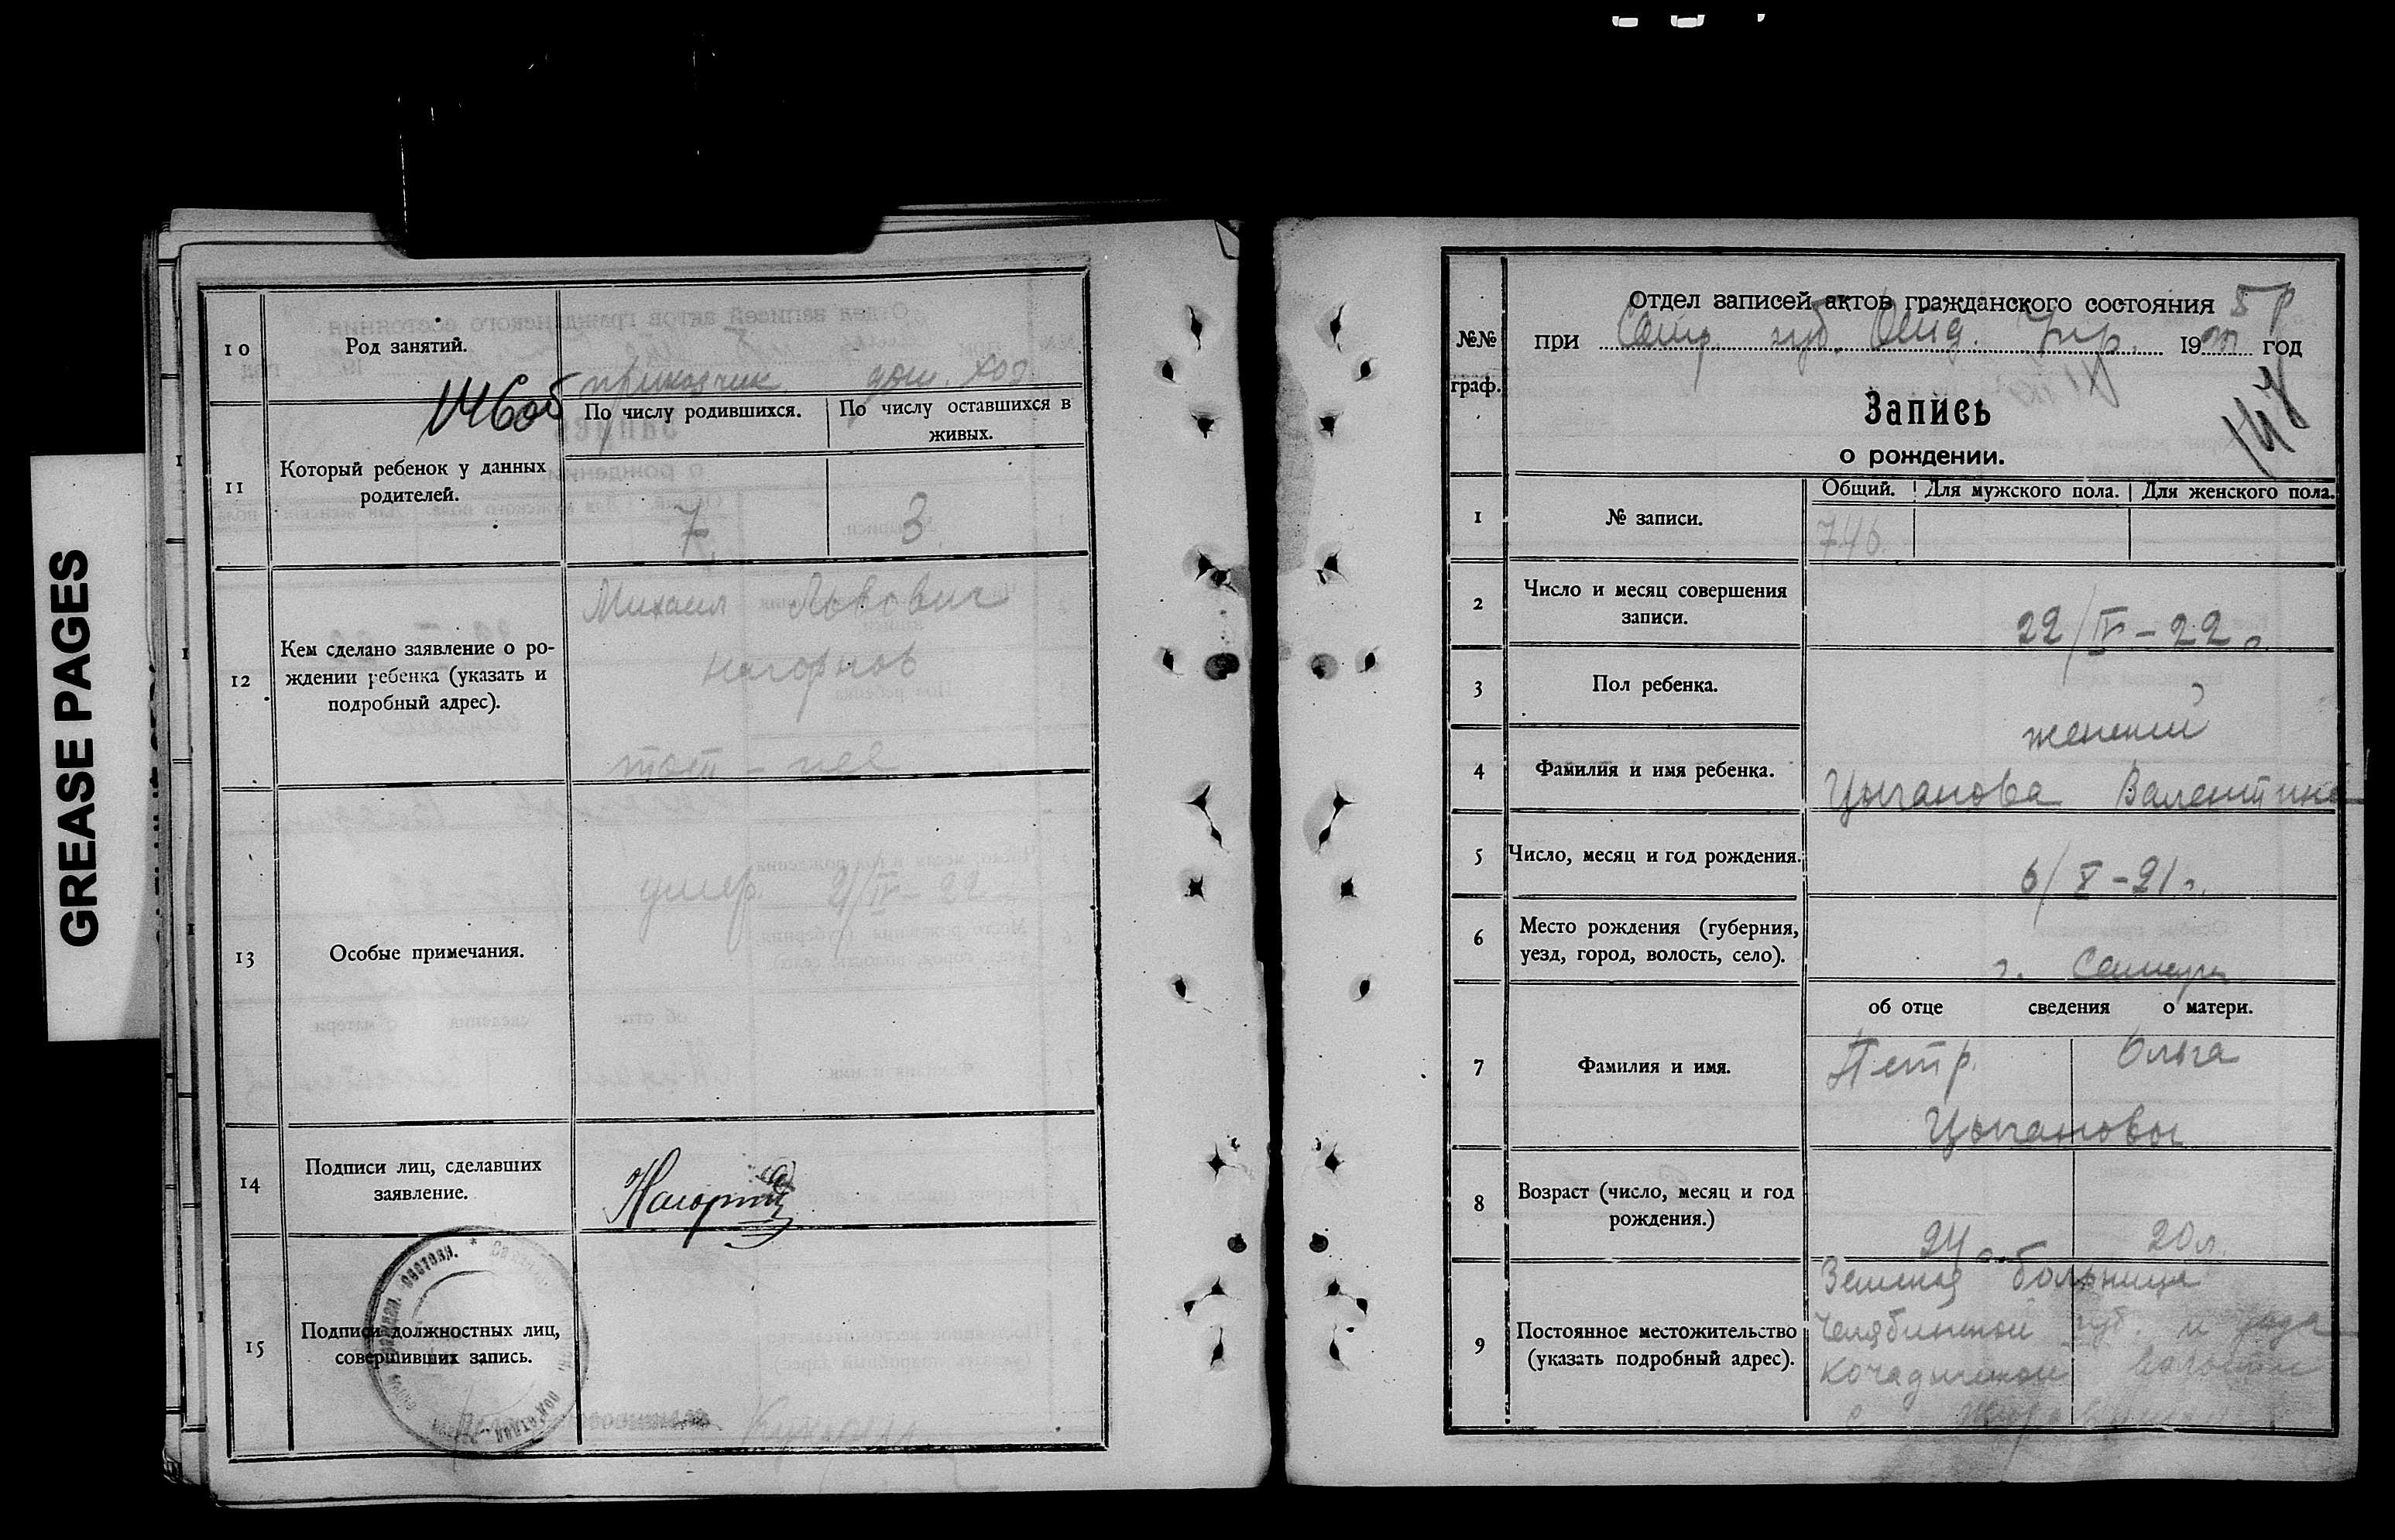 GREASE PAGES
10
Род занятий.
приказчик дом. хоз.
146об
11
Который ребенок у данных
родителей.
По числу родившихся.
По числу оставшихся в
живых.
7
3
12
Кем сделано заявление о ро-
ждении ребенка (указать и
подробный адрес).
Михаил Львович
Нагорнов
13
Особые примечания.
умер. 21/IV-22 г.
14
Подписи лиц, сделавших
заявление.
15
Подписи должностных лиц,
совершивших запись.
№№
граф.
Отдел записей актов гражданского состояния
при Сам. губ. Упр. 19 год
Запись
о рождении.
Общий. Для мужского пола. Для женского пола.
1
№ записи.
746
2
Число и месяц совершения
записи.
22/IV-22 г.
3
Пол ребенка.
женский
4
Фамилия и имя ребенка.
Цыганова Валентина
5
Число, месяц и год рождения.
6/X-21 г.
6
Место рождения (губерния,
уезд, город, волость, село).
г. Самара
об отце сведения о матери.
7
Фамилия и имя.
Петр. Ольга
Цыгановы
8
Возраст (число, месяц и год
рождения.)
24 г. 20 л.
9
Постоянное местожительство
(указать подробный адрес).
Земская больница
Челябинской губ. и уезда
волости
с.